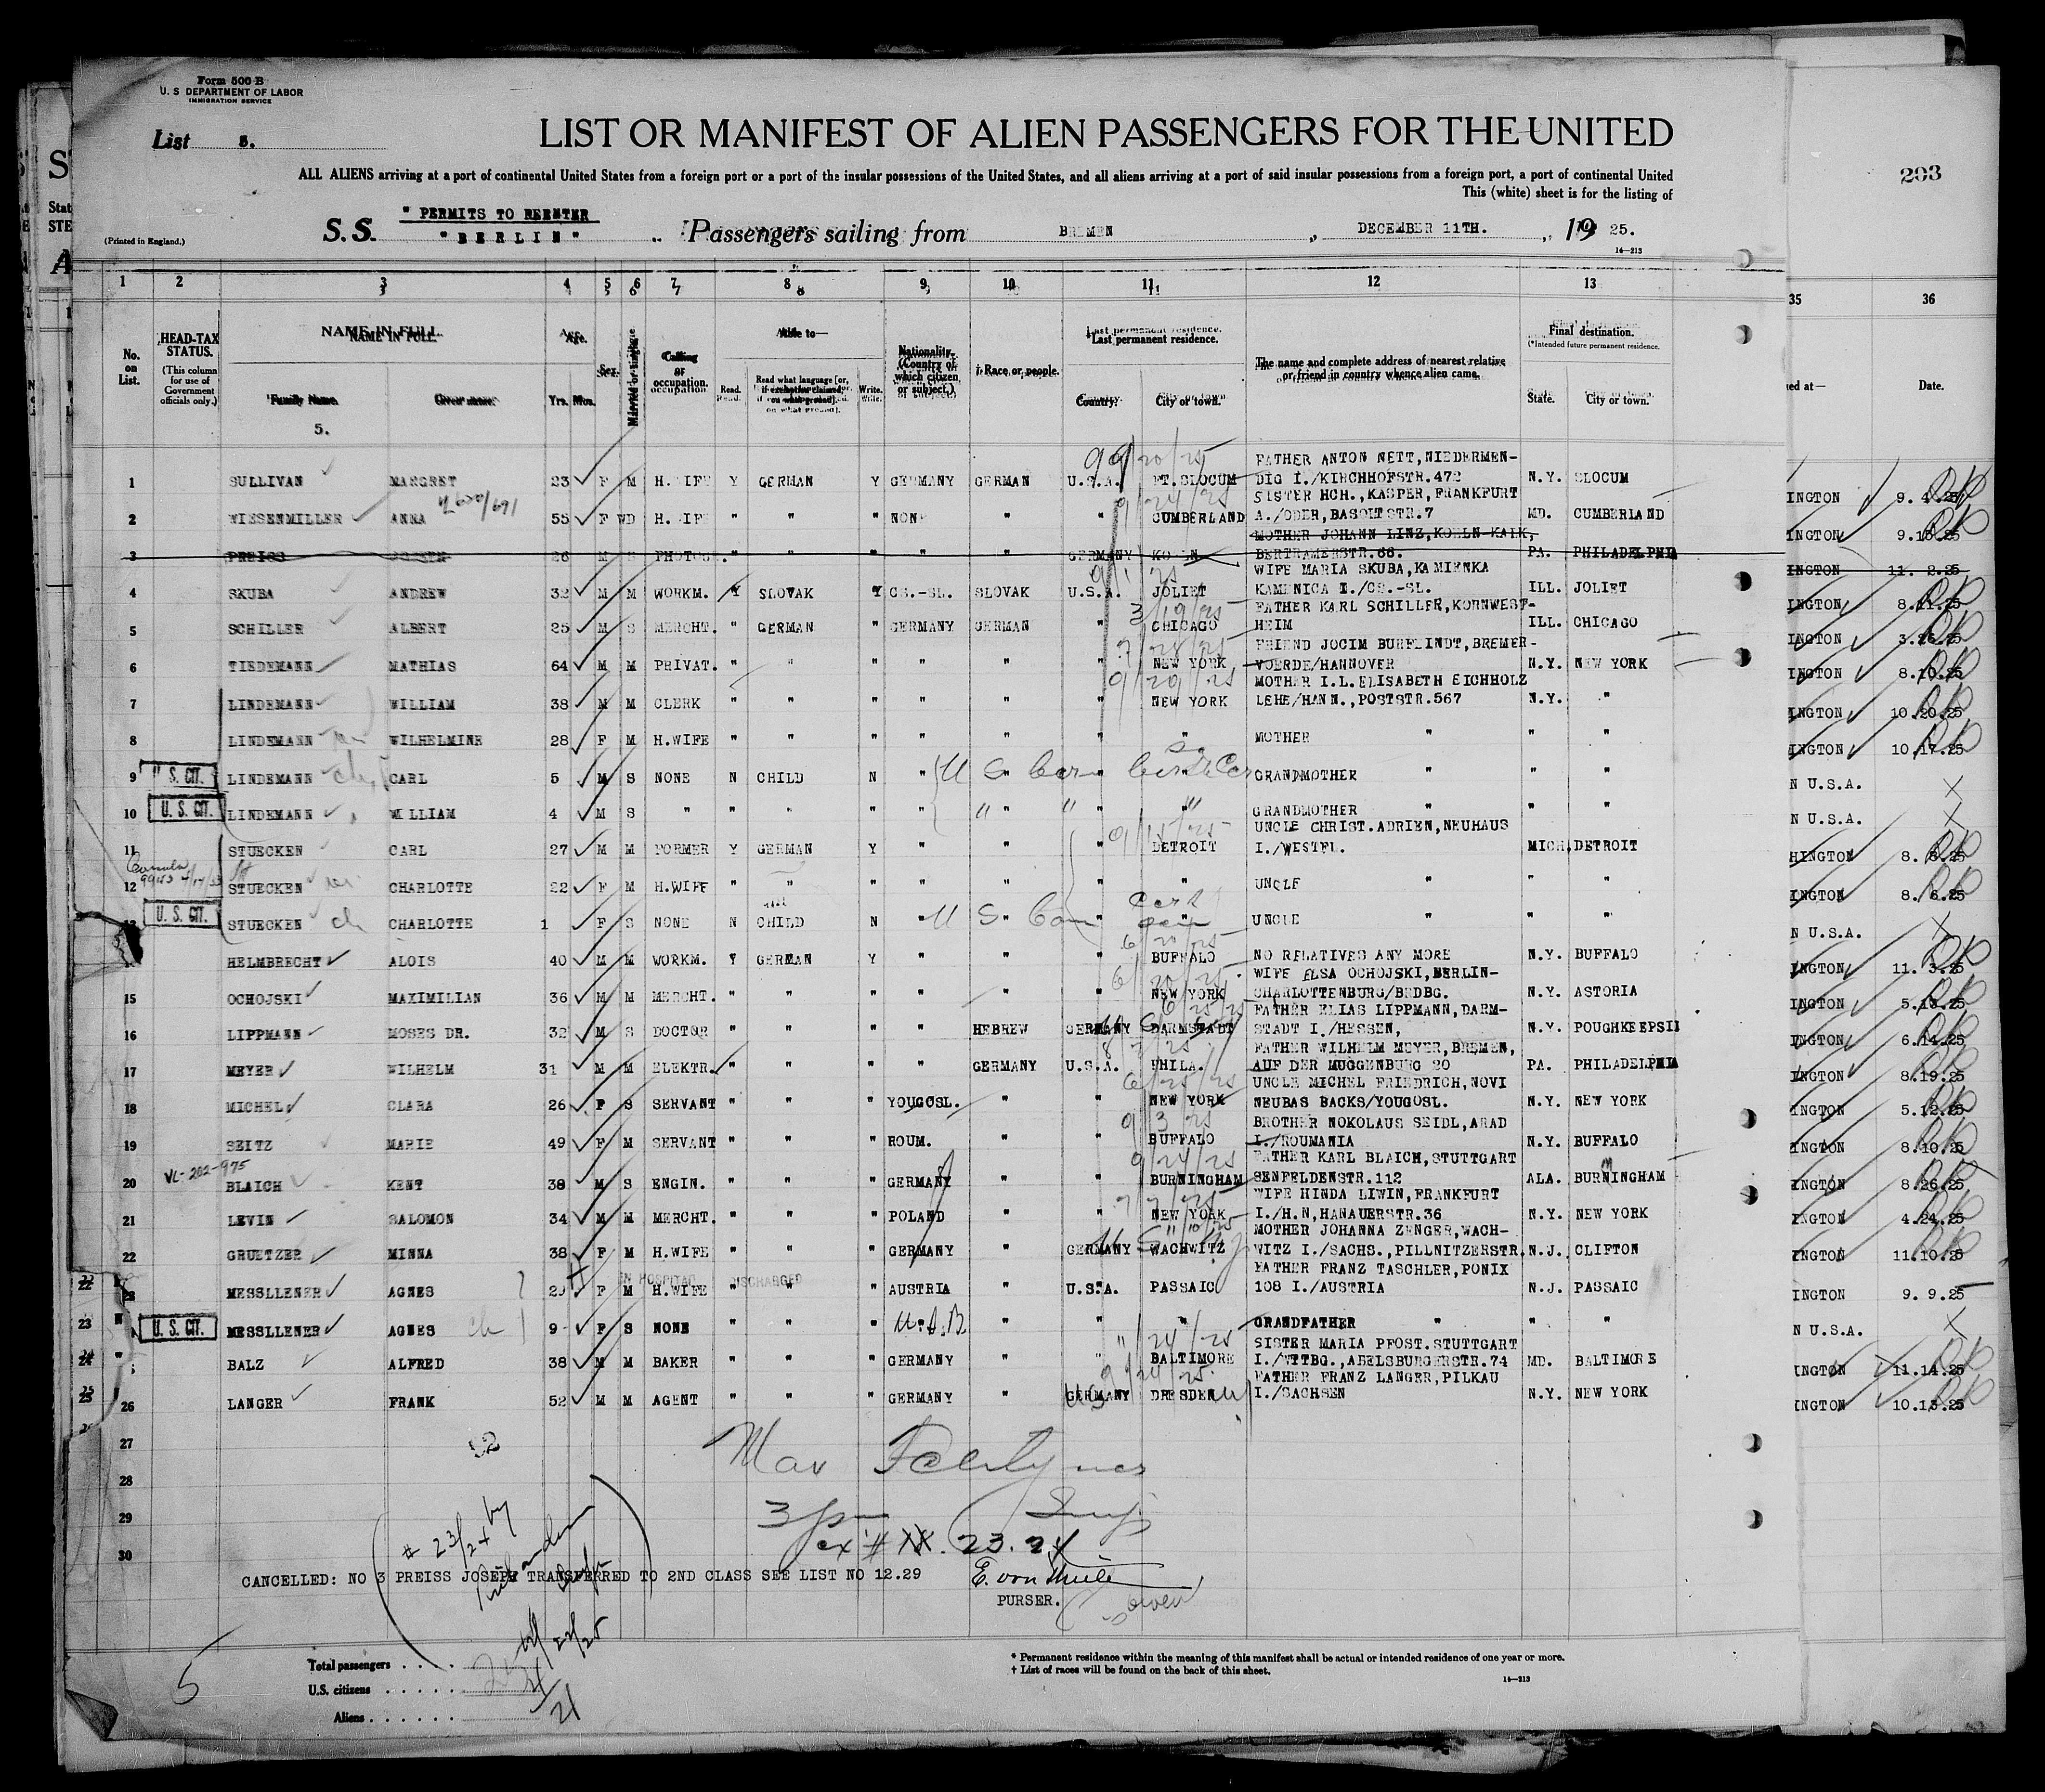 Form 500 B
U. S DEPARTMENT OF LABOR
IMMIGRATION SERVICE
List 5.
LIST OR MANIFEST OF ALIEN PASSENGERS FOR THE UNITED
ALL ALIENS arriving at a port of continental United States from a foreign port or a port of the insular possessions of the United States, and all aliens arriving at a port of said insular possessions from a foreign port, a port of continental United
This (white) sheet is for the listing of
203
" PERMITS TO REENTER
(Printed in England.) S.S. "BERLIN" Passengers sailing from BREMEN, DECEMBER 11TH., 19 25.
16—213
1 2 3 4 5 6 7 8 9 10 11 12 13 35 36
No. on List.
HEAD-TAX STATUS. (This column for use of Government officials only.)
NAME IN FULL.
Family Name. Given name.
5.
Age. Yrs. Mos.
Sex.
Married or Single
Calling or occupation.
Able to—
Read. Read what language [or, if exemption claimed, on what ground]. Write.
Nationality. (Country of which citizen or subject.)
† Race or people.
Last permanent residence.
Country. City or town.
The name and complete address of nearest relative or friend in country whence alien came.
Final destination.
(*Intended future permanent residence.
State. City or town.
ed at— Date.
9/20/25 FATHER ANTON NETT, NIEDERMEN-
1 SULLIVAN MARGRET 23 F M H.WIFE Y GERMAN Y GERMANY GERMAN U.S.A. FT.SLOCUM DIG I./KIRCHHOFSTR.472 N.Y. SLOCUM INGTON 9. 4.25
9/24/25 SISTER HCH., KASPER, FRANKFURT
2 WIESENMILLER ANNA 55 F WD H.WIFE " " " NON " " CUMBERLAND A./ODER, BASOITSTR.7 MD. CUMBERLAND INGTON 9.16.25
MOTHER JOHANN LINZ, KOELN-KALK,
3 PREISS JOSEPH 26 M S PHOTOG. " " " " " GERMANY KOELN BERTRAMERSTR.66. PA. PHILADELPHIA INGTON 11. 2.25
WIFE MARIA SKUBA, KAMIENKA
4 SKUBA ANDREW 32 M M WORKM. Y SLOVAK Y CS.-SL. SLOVAK U.S.A. JOLIET KAMENICA I./CS.-SL. ILL. JOLIET INGTON 8.11.25
3/19/25 FATHER KARL SCHILLER, KORNWEST-
5 SCHILLER ALBERT 25 M S MERCHT. " GERMAN " GERMANY GERMAN " CHICAGO HEIM ILL. CHICAGO INGTON 3.26.25
7/28/25 FRIEND JOCIM BURFLINDT, BREMER-
6 TIEDEMANN MATHIAS 64 M M PRIVAT. " " " " " " NEW YORK VOERDE/HANNOVER N.Y. NEW YORK INGTON 8.10.25
9/29/25 MOTHER I.L. ELISABETH EICHHOLZ
7 LINDEMANN WILLIAM 38 M M CLERK " " " " " " NEW YORK LEHE/HANN., POSTSTR.567 N.Y. " INGTON 10.20.25
8 LINDEMANN WILHELMINE 28 F M H.WIFE " " " " " " " MOTHER " " " " INGTON 10.17.25
9 U. S. CIT. LINDEMANN ch CARL 5 M S NONE N CHILD N " " " GRANDMOTHER " " " " N U.S.A.
10 U. S. CIT. LINDEMANN WILLIAM 4 M S " " " " " " " " GRANDMOTHER " " " " N U.S.A.
9/15/25 UNCLE CHRIST. ADRIEN, NEUHAUS
11 STUECKEN CARL 27 M M FORMER Y GERMAN Y " " " DETROIT I./WESTFL. MICH. DETROIT HINGTON 8. 8.25
12 STUECKEN CHARLOTTE 22 F M H.WIFE " " " " " " " UNCLE " " " " INGTON 8. 6.25
13 U. S. CIT. STUECKEN ch CHARLOTTE 1 F S NONE N CHILD N " " " " UNCLE " " " " N U.S.A.
HELMBRECHT ALOIS 40 M M WORKM. Y GERMAN Y " " " BUFFALO NO RELATIVES ANY MORE N.Y. BUFFALO INGTON 11. 3.25
6/20/25 WIFE ELSA OCHOJSKI, BERLIN-
15 OCHOJSKI MAXIMILIAN 36 M M MERCHT. " " " " " " NEW YORK CHARLOTTENBURG/BRDBG. N.Y. ASTORIA INGTON 5.13.25
FATHER ELIAS LIPPMANN, DARM-
16 LIPPMANN MOSES DR. 32 M S DOCTOR " " " " HEBREW GERMANY DARMSTADT STADT I./HESSEN, N.Y. POUGHKEEPSIE INGTON 6.14.25
FATHER WILHELM MEYER, BREMEN,
17 MEYER WILHELM 31 M M ELEKTR. " " " " GERMANY U.S.A. PHILA. AUF DER MUGGENBURG 20 PA. PHILADELPHIA INGTON 8.19.25
6/25/25 UNCLE MICHEL FRIEDRICH, NOVI
18 MICHEL CLARA 26 F S SERVANT " " " YOUGOSL. " " NEW YORK NEUBAS BACKS/YOUGOSL. N.Y. NEW YORK INGTON 5.12.25
9/3/25 BROTHER NOKOLAUS SEIDL, ARAD
19 SEITZ MARIE 49 F M SERVANT " " " ROUM. " " BUFFALO I./ROUMANIA N.Y. BUFFALO INGTON 8.10.25
VL-202-975 9/24/25 FATHER KARL BLAICH, STUTTGART
20 BLAICH KENT 38 M S ENGIN. " " " GERMANY " " BURNINGHAM SENFELDENSTR.112 ALA. BURNINGHAM INGTON 8.26.25
7/7/25 WIFE HINDA LIWIN, FRANKFURT
21 LEVIN SALOMON 34 M M MERCHT. " " " POLAND " " NEW YORK I./H.N, HANAUERSTR.36 N.Y. NEW YORK INGTON 4.24.25
MOTHER JOHANNA ZENGER, WACH-
22 GRUETZER MINNA 38 F M H.WIFE " " " GERMANY " GERMANY WACHWITZ WITZ I./SACHS., PILLNITZERSTR. N.J. CLIFTON INGTON 11.10.25
IN HOSPITAL DISCHARGED FATHER FRANZ TASCHLER, PONIX
22 MESSLLENER AGNES 29 F M H.WIFE " " " AUSTRIA " U.S.A. PASSAIC 108 I./AUSTRIA N.J. PASSAIC INGTON 9. 9.25
23 U. S. CIT. MESSLLENER AGNES ch 9 F S NONE " " " " " " GRANDFATHER " " " N U.S.A.
11/24/25 SISTER MARIA PFOST. STUTTGART
24 BALZ ALFRED 38 M M BAKER " " " GERMANY " " BALTIMORE I./WTTBG., ABELSBURGERSTR.74 MD. BALTIMORE INGTON 11.14.25
9/24/25 FATHER FRANZ LANGER, PILKAU
25 26 LANGER FRANK 52 M M AGENT " " " GERMANY " GERMANY DRESDEN I./SACHSEN N.Y. NEW YORK INGTON 10.13.25
27
28
29
30
ex # 23. 24
# 23/24 by
CANCELLED: NO 3 PREISS JOSEPH TRANSFERRED TO 2ND CLASS SEE LIST NO 12.29
PURSER.
12/22/25
5
Total passengers . . . .
U.S. citizens . . . . .
Aliens . . . . . .
21
* Permanent residence within the meaning of this manifest shall be actual or intended residence of one year or more.
† List of races will be found on the back of this sheet.
14—213